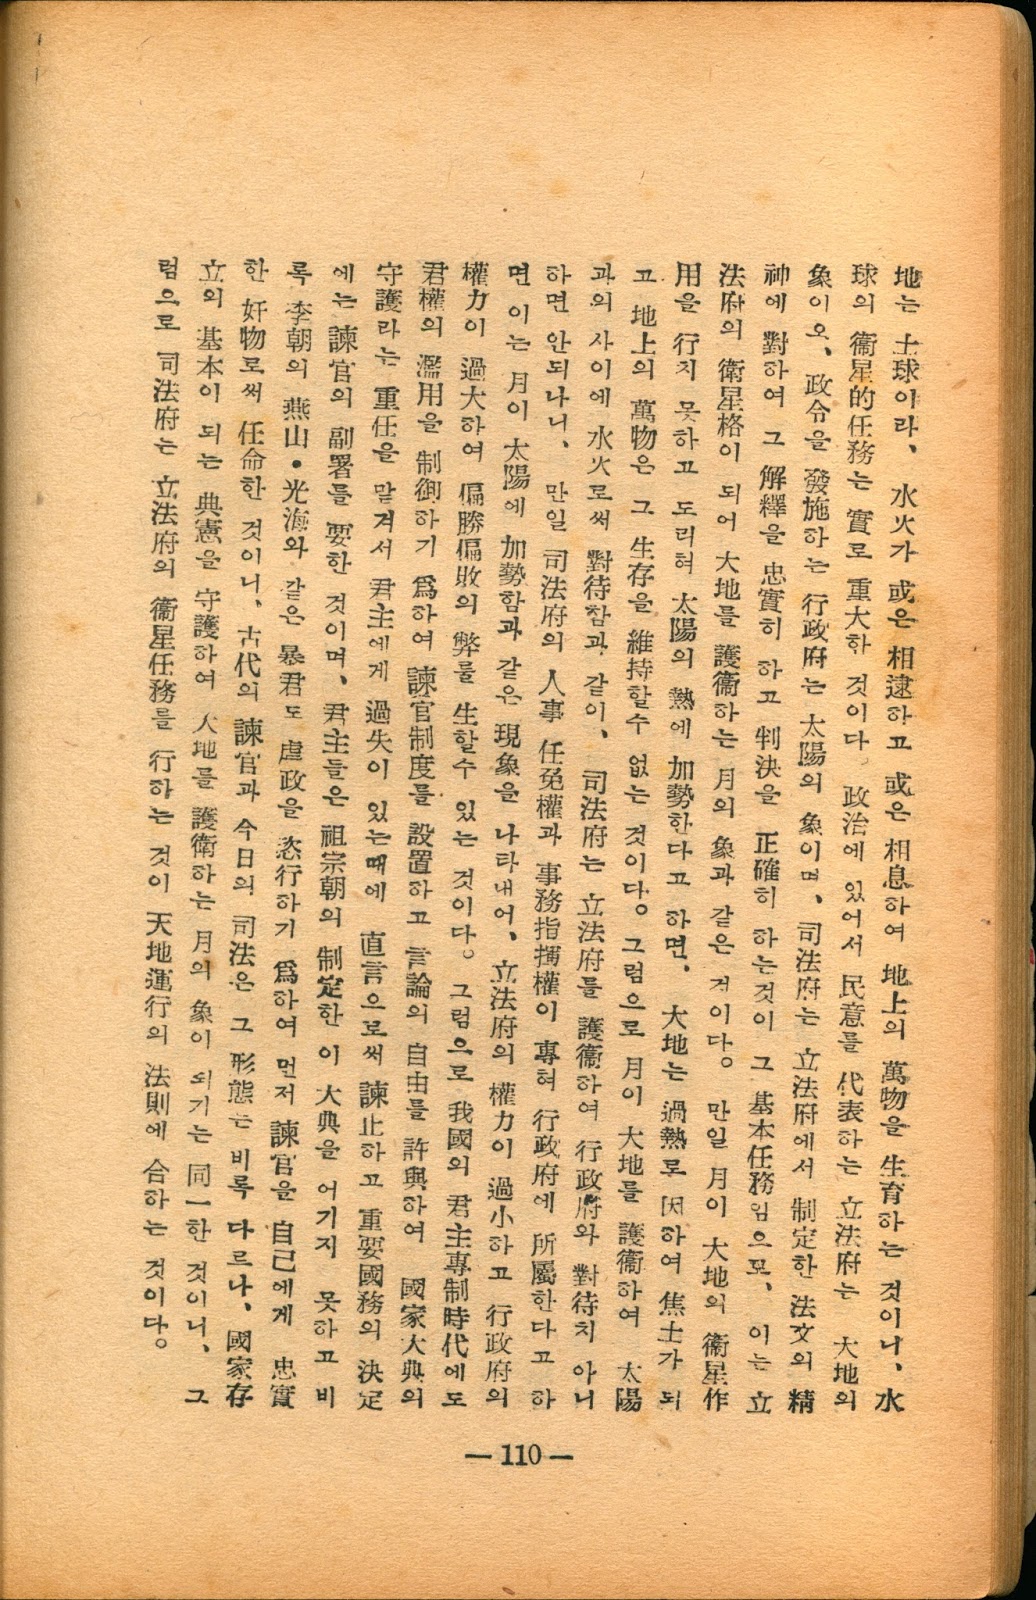 地는 土球이라、 水火가 或은 相逮하고 或은 相息하여 地上의 萬物을 生育하는 것이니、 水
球의 衞星的任務는 實로 重大한 것이다。 政治에 있어서 民意를 代表하는 立法府는 大地의
象이오、 政令을 發施하는 行政府는 太陽의 象이며、 司法府는 立法府에서 制定한 法文의 精
神에 對하여 그 解釋을 忠實히 하고 判決을 正確히 하는것이 그 基本任務임으로、 이는 立
法府의 衛星格이 되어 大地를 護衞하는 月의 象과 같은 것이다。 만일 月이 大地의 衞星作
用을 行치 못하고 도리혀 太陽의 熱에 加勢한다고 하면、 大地는 過熱로 因하여 焦土가 되
고 地上의 萬物은 그 生存을 維持할수 없는 것이다。 그럼으로 月이 大地를 護衞하여 太陽
과의 사이에 水火로써 對待함과 같이、 司法府는 立法府를 護衞하여 行政府와 對待치 아니
하면 안되나니、 만일 司法府의 人事 任免權과 事務指揮權이 專혀 行政府에 所屬한다고 하
면 이는 月이 太陽에 加勢함과 같은 現象을 나타내어、 立法府의 權力이 過小하고 行政府의
權力이 過大하여 偏勝偏敗의 弊를 生할수 있는 것이다。 그럼으로 我國의 君主專制時代에도
君權의 濫用을 制御하기 爲하여 諫官制度를 設置하고 言論의 自由를 許與하여 國家大典의
守護라는 重任을 맡겨서 君主에게 過失이 있는때에 直言으로써 諫止하고 重要國務의 決定
에는 諫官의 副署를 要한 것이며、 君主들은 祖宗朝의 制定한 이 大典을 어기지 못하고 비
록 李朝의 燕山・光海와 같은 暴君도 虐政을 恣行하기 爲하여 먼저 諫官을 自己에게 忠實
한 奸物로써 任命한 것이니、 古代의 諫官과 今日의 司法은 그 形態는 비록 다르나、 國家存
立의 基本이 되는 典憲을 守護하여 大地를 護衛하는 月의 象이 되기는 同一한 것이니、 그
럼으로 司法府는 立法府의 衞星任務를 行하는 것이 天地運行의 法則에 合하는 것이다。
— 110 —